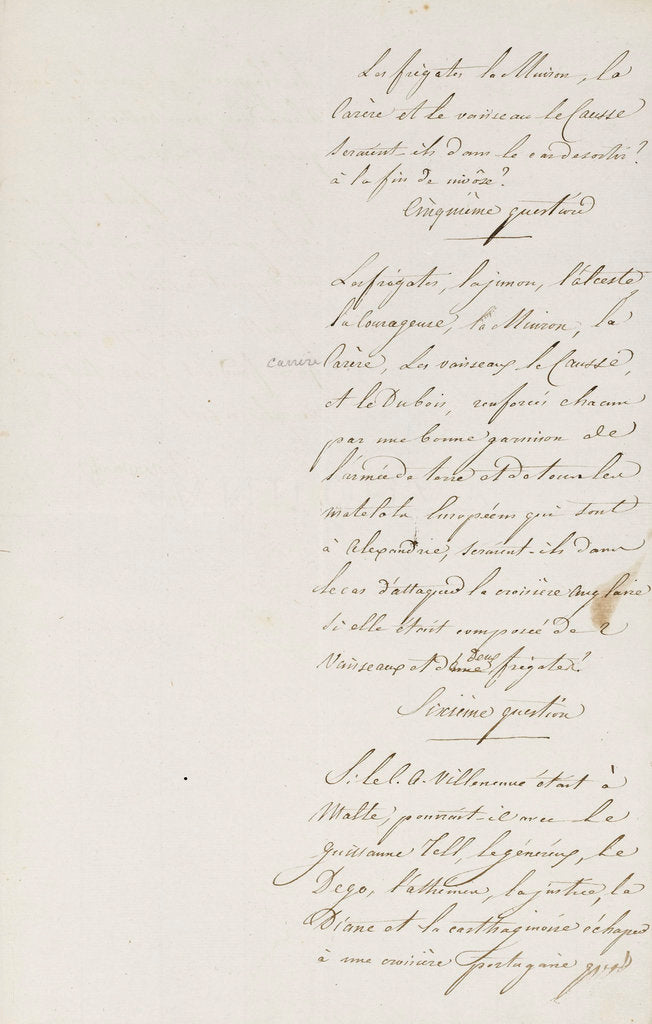 Les frégates la Muiron, la
Carère et le vaisseau le Causse
seraient-ils dans le cas de sortir?
à la fin de nivôse?
Cinquième question
Les frégates, la junon, l'alceste
la Courageuse, la Muiron, la
carrere Carère, Les vaisseaux le Causse,
et le Dubois, renforcés chacun
par une bonne garnison de
l'armée de terre et de tous les
matelots Européens qui sont
à Alexandrie, seraient-ils dans
le cas d'attaquer la croisière anglaise
si elle était composée de 2
vaisseaux et d'une deux frégates?
Sixième question
Si le C. A. Villeneuve était à
Malte, pourrait-il avec le
guillaume Tell, le généreux, le
Dego, l'athénien, la justice, la
Diane et la carthaginoise échaper
à une croisière portugaise